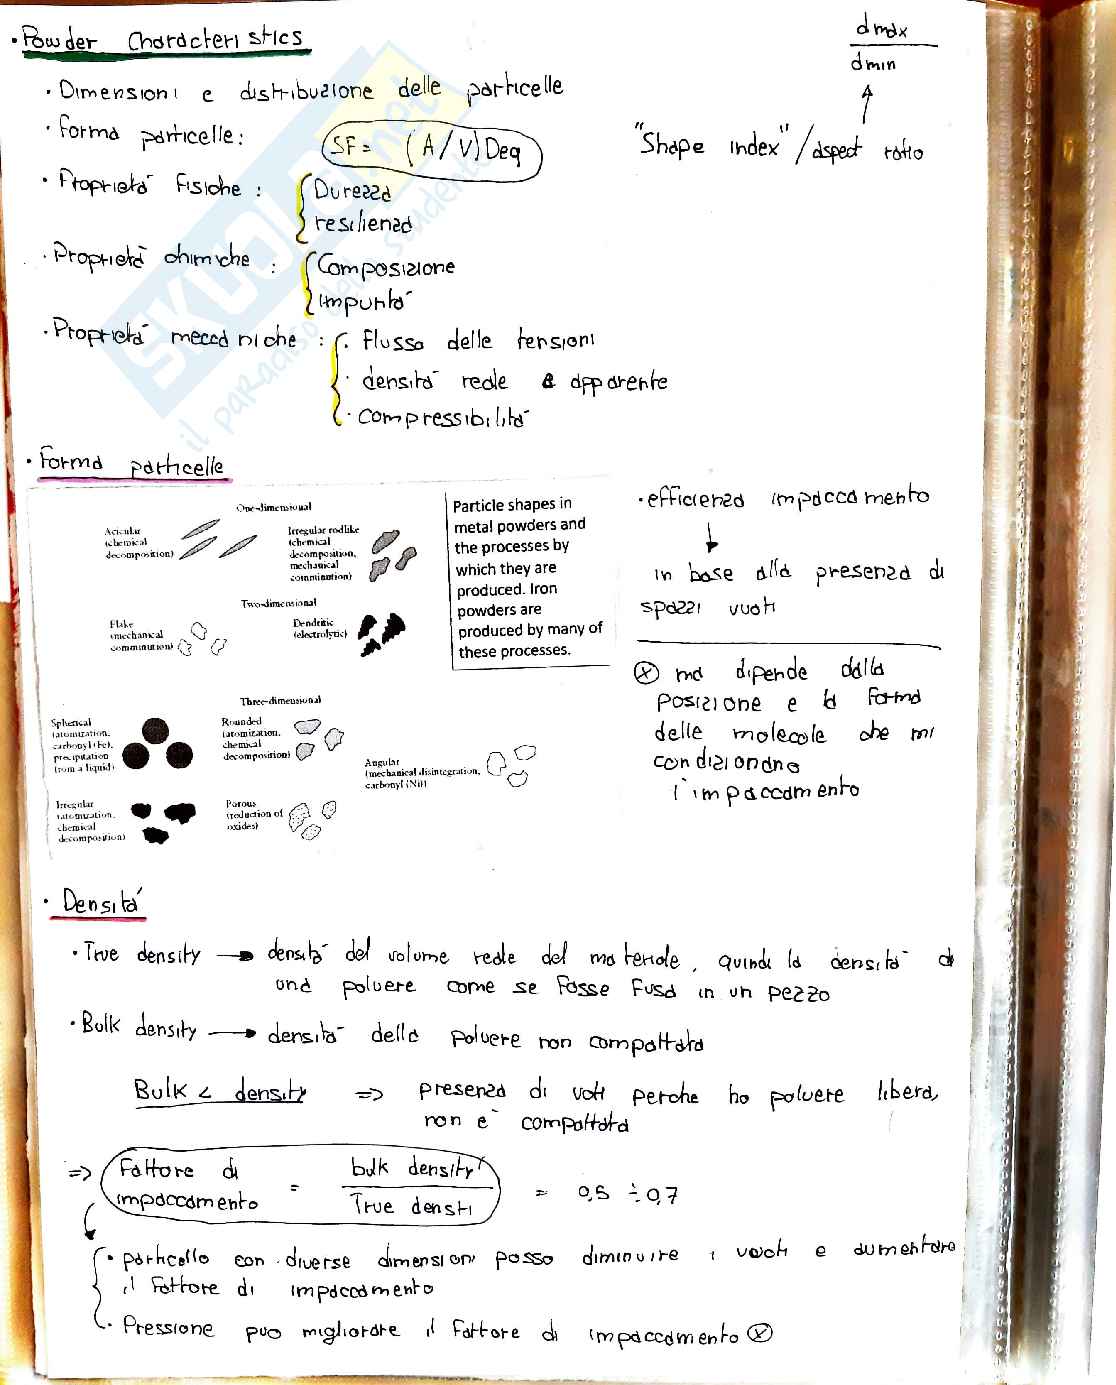 • Powder Characteristics
d max
d min
• Dimensioni e distribuzione delle particelle
• Forma particelle:
SF = (A/V) Deq
"Shape index" / aspect ratio
• Proprietà fisiche :
Durezza
resilienza
• Proprietà chimiche :
Composizione
impurità
• Proprietà meccaniche :
• flusso delle tensioni
• densità reale & apparente
• compressibilità
SKUOLA.net
il paradiso dello studente
• Forma particelle
One-dimensional
Acicular
(chemical
decomposition)
Irregular rodlike
(chemical
decomposition,
mechanical
comminution)
Two-dimensional
Flake
(mechanical
comminution)
Dendritic
(electrolytic)
Three-dimensional
Spherical
(atomization,
carbonyl (Fe),
precipitation
from a liquid)
Rounded
(atomization,
chemical
decomposition)
Angular
(mechanical disintegration,
carbonyl (Ni))
Irregular
(atomization,
chemical
decomposition)
Porous
(reduction of
oxides)
Particle shapes in
metal powders and
the processes by
which they are
produced. Iron
powders are
produced by many of
these processes.
• efficienza impaccamento
↓
in base alla presenza di
spazzi vuoti
ⓧ ma dipende dalla
posizione e la forma
delle molecole che mi
condizionano
l'impaccamento
• Densità
• True density → densità del volume reale del materiale, quindi la densità di
una polvere come se fosse fusa in un pezzo
• Bulk density → densità della polvere non compattata
Bulk < density => presenza di vuoti perche ho polvere libera,
non è compattata
=> Fattore di impaccamento = bulk density / True densti = 0,5 ÷ 0,7
• particelle con diverse dimensioni posso diminuire i vuoti e aumentare
il fattore di impaccamento
• Pressione puo migliorare il fattore di impaccamento ⓧ